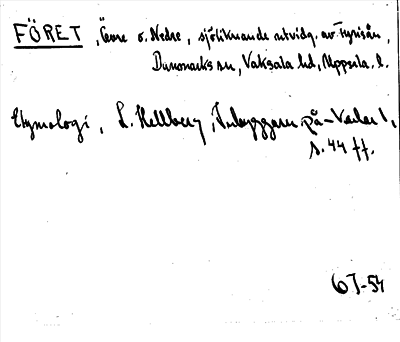 FÖRET, Övre o. Nedre, sjöliknande utvidg. av Fyrisån,
Danmarks sn, Vaksala hd, Uppsala l.
Etymologi, L. Hellberg, Inbyggarn. på -karlar 1,
s. 44 ff.